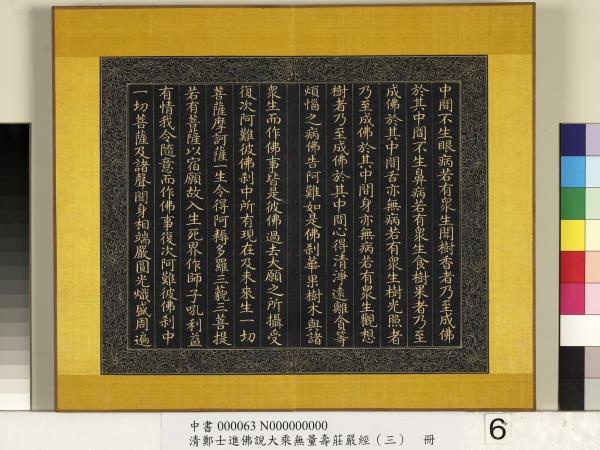 中間不生眼病若有衆生聞樹香者乃至成佛
於其中間不生鼻病若有衆生食樹果者乃至
成佛於其中間舌亦無病若有衆生樹光照者
乃至成佛於其中間身亦無病若有衆生觀想
樹者乃至成佛於其中間心得清淨遠離貪等
煩惱之病佛告阿難如是佛刹華果樹木與諸
衆生而作佛事皆是彼佛過去大願之所攝受
復次阿難彼佛刹中所有現在及未來生一切
菩薩摩訶薩一生令得阿耨多羅三藐三菩提
若有菩薩以宿願故入生死界作師子吼利益
有情我令隨意而作佛事復次阿難彼佛刹中
一切菩薩及諸聲聞身相端嚴圓光熾盛周遍
中書 000063 N000000000
清鄭士進佛說大乘無量壽莊嚴經（三） 冊
6